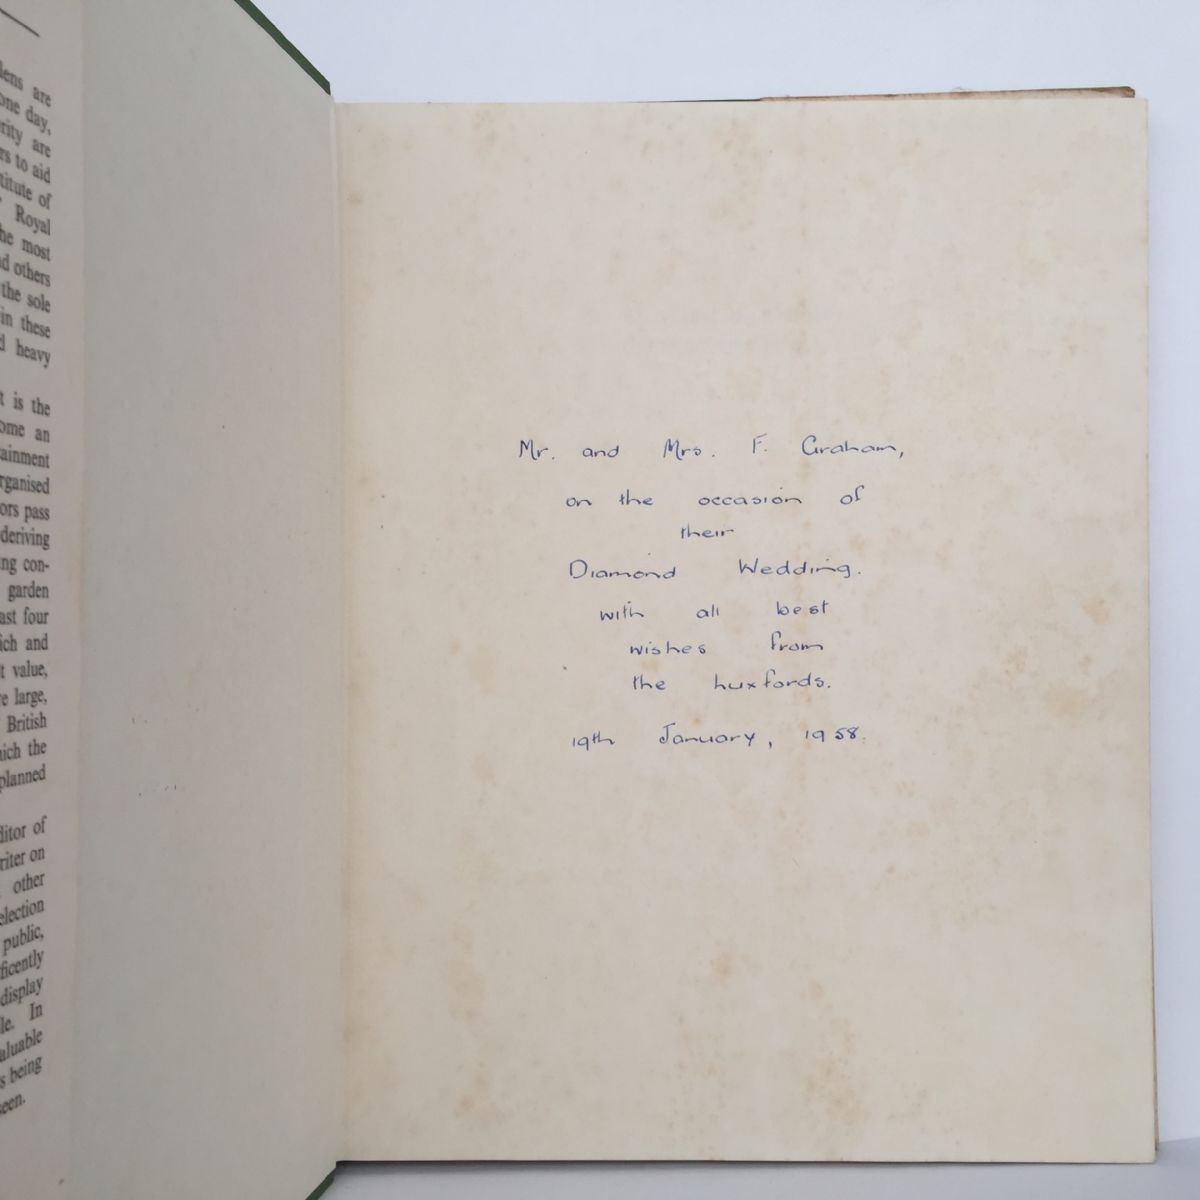 lens are
one day,
rity are
rs to aid
titute of
Royal
he most
nd others
the sole
in these
d heavy
t is the
ome an
ainment
rganised
ors pass
deriving
ng con-
garden
ast four
ich and
t value,
e large,
British
hich the
planned
ditor of
riter on
other
election
public,
ficently
display
le. In
aluable
s being
seen.
Mr. and Mrs. F. Graham,
on the occasion of
their
Diamond Wedding.
with all best
wishes from
the huxfords.
19th January, 1958.